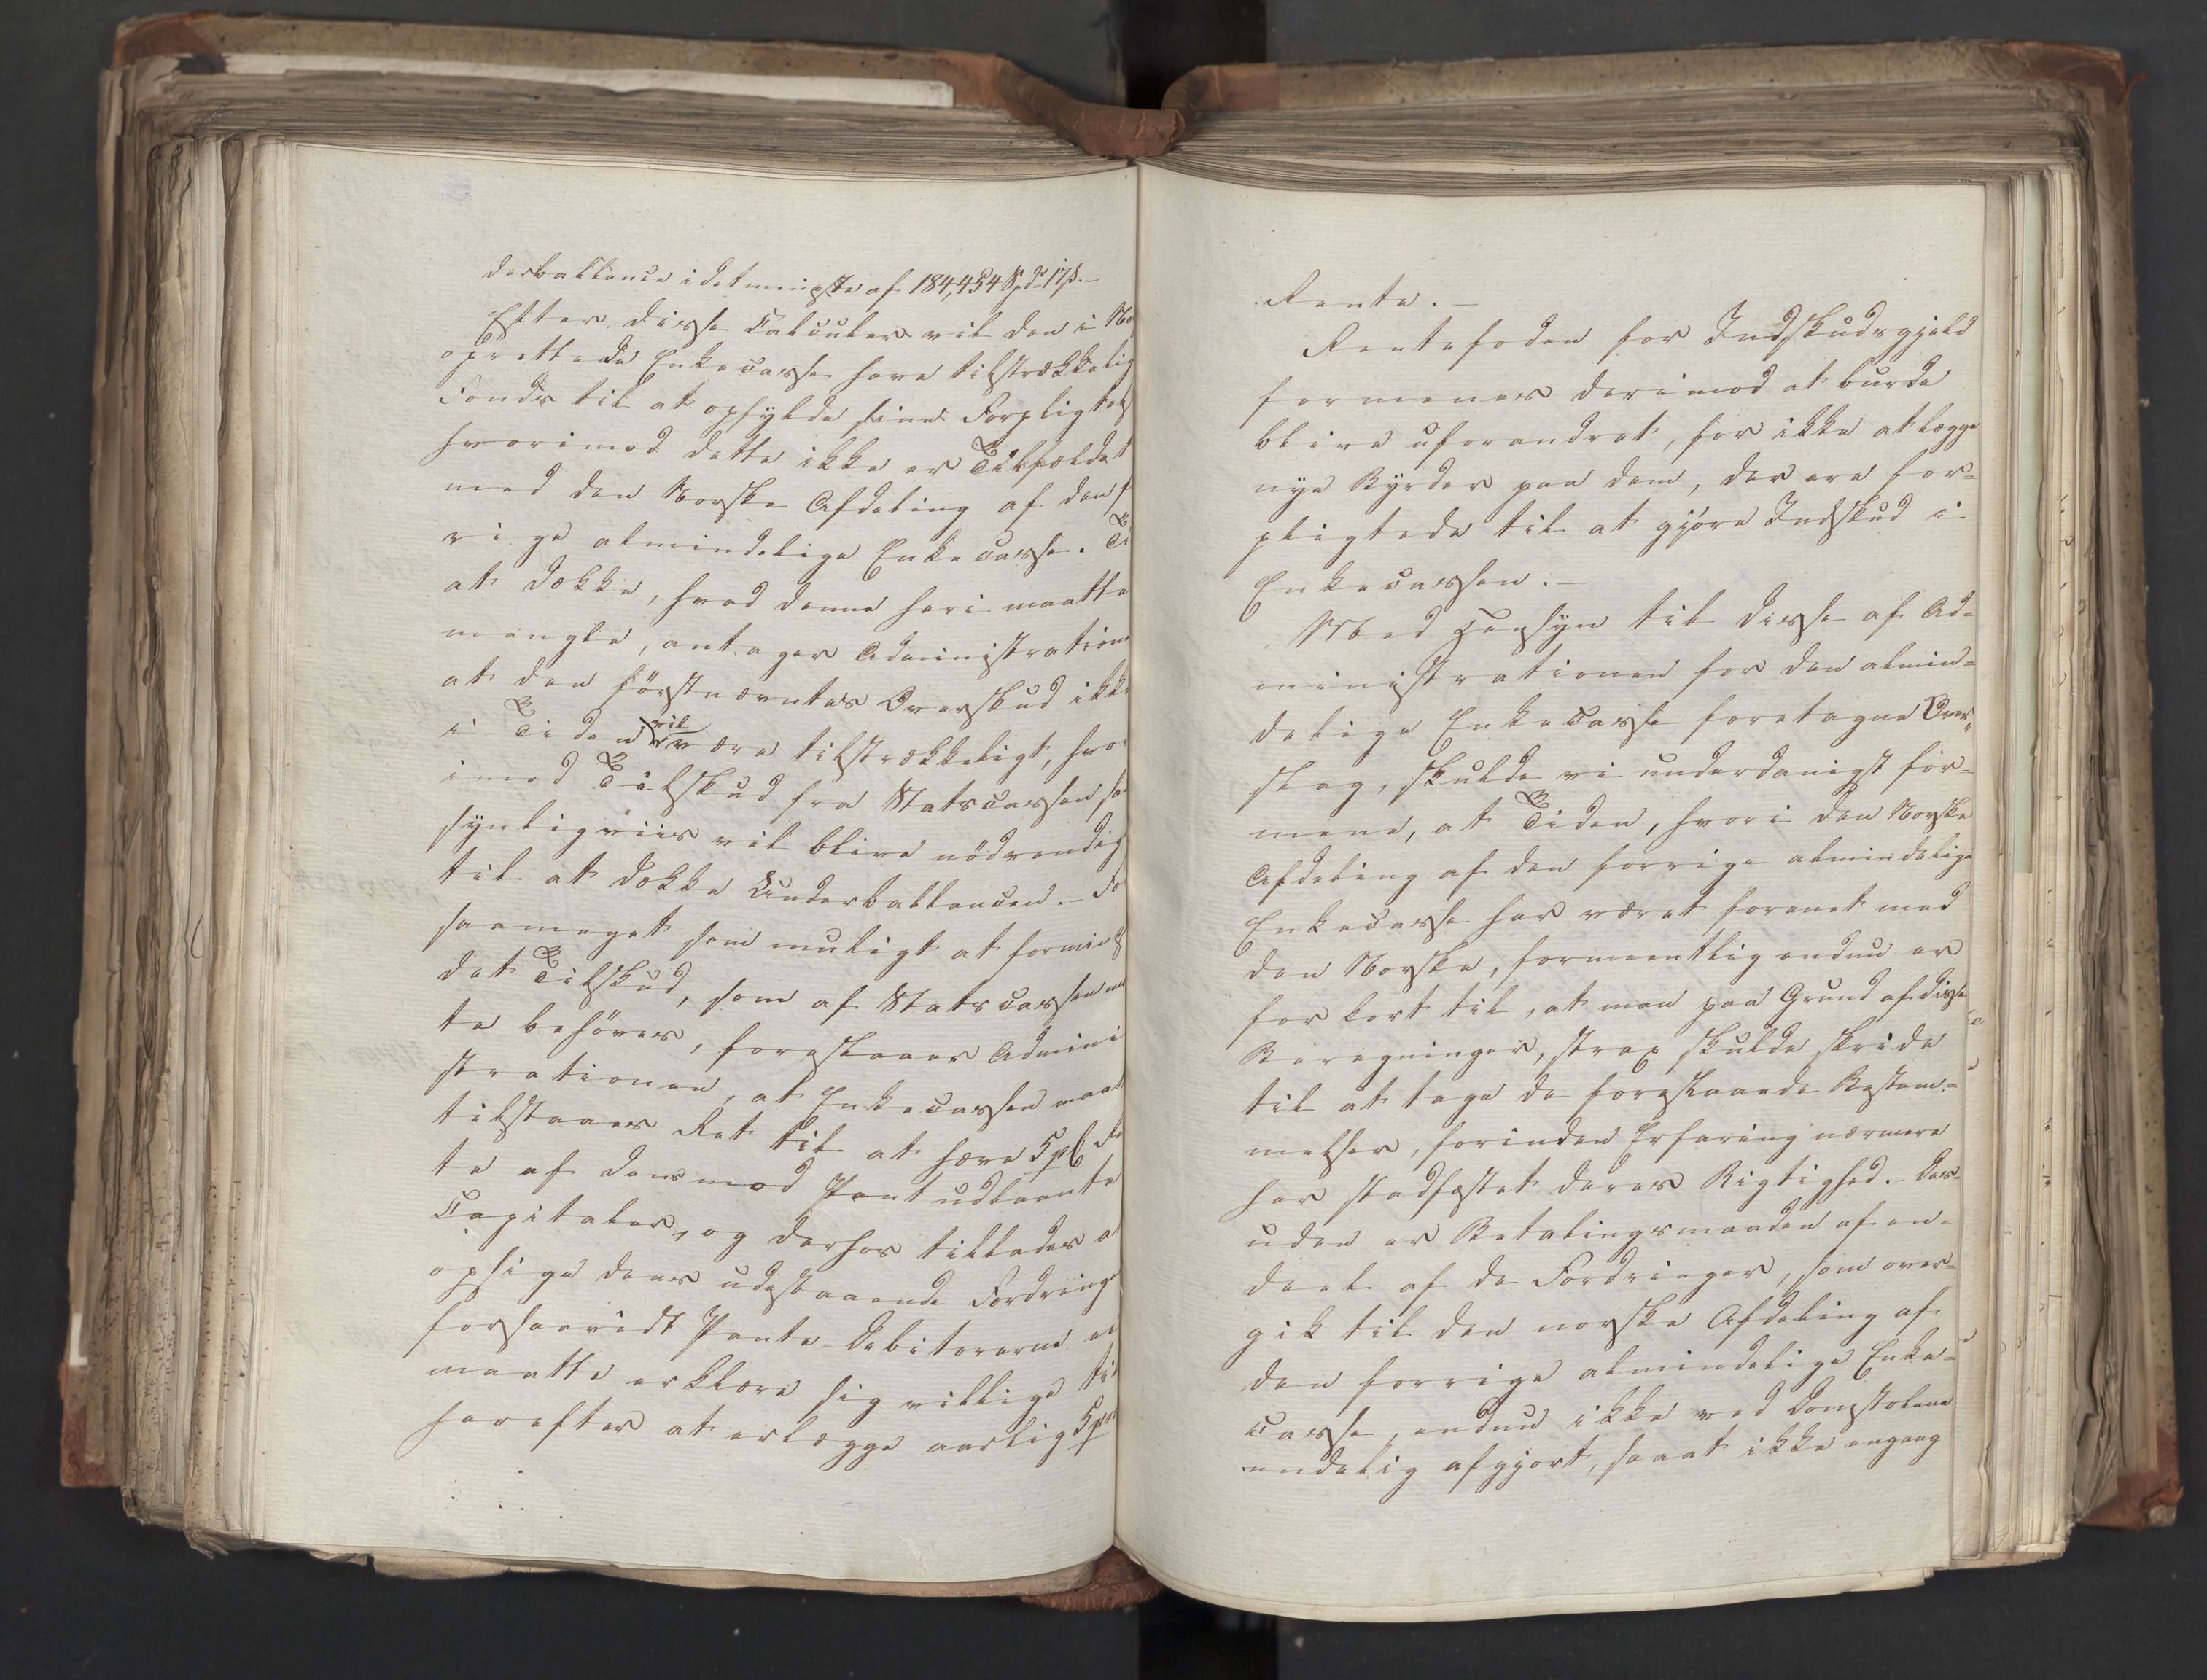 derballance i detmindste af 184,454 Spd 17 ß. –
Efter disse Calculer vil den i No
oprettede Enkecasse have tilstrækkelig
Fonds til at opfylde sine Forpligtels
hvorimod dette ikke er Tilfældet
med den Norske Afdeling af den f
rige almindelige Enkecasse. Ti
at dække, hvad denne heri maatte
mangle, antager Administratione
at den förstnævntes Overskud ikke
i Tiden vil være tilstrækkeligt, hvor
imod Tilskud fra Statscassen san
synligviis vil blive nödvendig
til at dække Underballancen. – Fo
saameget som muligt at formind
det Tilskud, som af Statscassen maa
te behöves, foreslaaer Admini
strationen, at Enkecassen maat
tilstaaes Ret til at hæve 5 pC Re
te af dens mod Pant udlaante
Capitaler, og derhos tillades at
opsige dens udestaaende Fordringe
forsaavidt Pante-Debitorerne ei
maatte erklære sig villige til
herefter at erlægge aarlig 5 pro
Rente. –
Rentefoden for Indskudsgjeld
formenes derimod at burde
blive uforandret, for ikke at lægge
nye Byrder paa dem, der ere for-
pligtede til at gjöre Indskud i
Enkecassen. –
Med Hensyn til disse af Ad-
ministrationen for den almin-
delige Enkecasse foretagne Over-
slag, skulde vi underdanigst for-
mene, at Tiden, hvori den Norske
Afdeling af den forrige almindelige
Enkecasse har været forenet med
den Norske, formeentlig endnu er
for kort til, at man paa Grund af disse
Beregninger, strax skulde skride
til at tage de foreslaaede Bestem-
melser, forinden Erfaring nærmere
har stadfæstet deres Rigtighed. – Des-
uden er Betalingsmaaden af en-
deel af de Fordringer, som over-
gik til den norske Afdeling af
den forrige almindelige Enke-
casse, endnu ikke ved Domstolene
endelig afgjort, saaat ikke engang